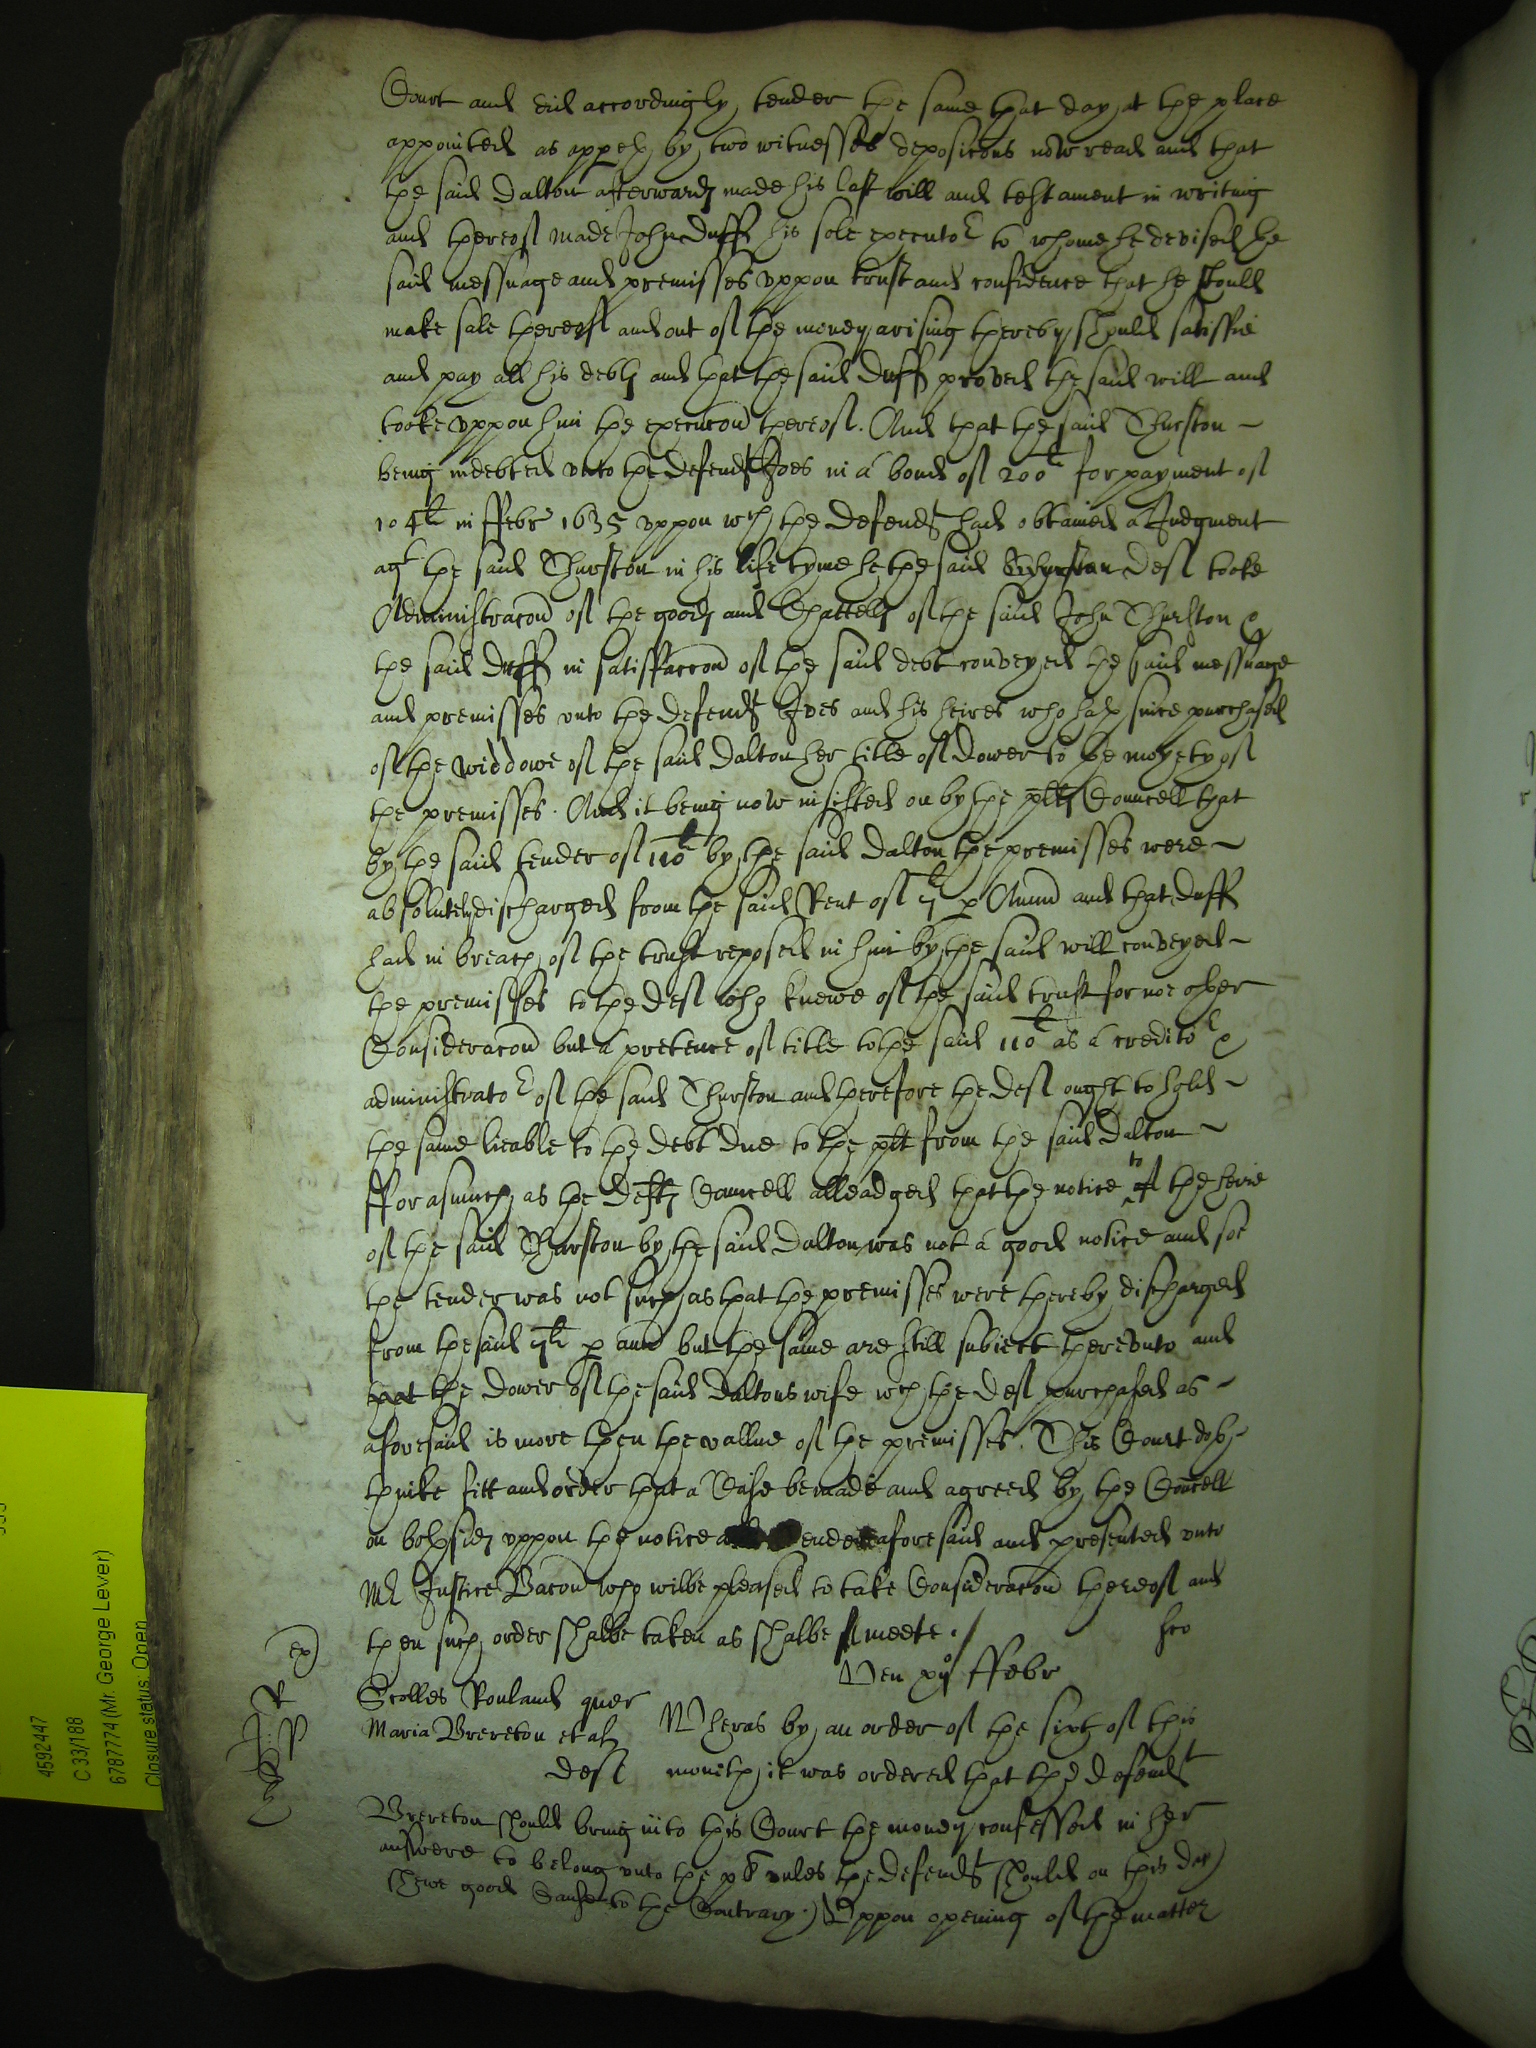 Court and did accordingly tender the same that day at the place
appointed as appeth by two witnesses deposicons now read and that
the said Dalton afterwards made his last will and testament in writing
and thereof made John Duff his sole executor to whome he devised the
said messuage and premisses uppon trust and confidence that he should
make sale thereof and out of the money arising thereby should satisfie
and pay all his debts and that the said Duff proved the said will and
tooke uppon him the execucon thereof. And that the said Thurston
being indebted unto the defendt Ives in a bond of 200l for payment of
104li in ffebr 1635 uppon wch the defendt had obtained a Judgment
agt the said Thurston in his life tyme he the said deft tooke
Administracon of the goods and Chattells of the said John Thurston &
the said Duff in satisfaccon of the said debt conveyed the said messuage
and premisses unto the defendt Ives and his heires who hath since purchased
of the widdowe of the said Dalton her title of Dower to the moyety of
the premisses. And it being now insisted on by the plts Councell that
by the said tender of 110l by the said Dalton the premisses were
absolutely discharged from the said Rent of p Annu and that Duff
had in breach of the trust reposed in him by the said will conveyed
the premisses to the deft who knewe of the said trust for noe other
Consideracon but a pretence of title to the said 110l as a creditor &
administrator of the said Thurston and therefore the deft ought to hold
the same lieable to the debt due to the plt from the said Dalton
fforasmuch as the defts Councell alleadged that the notice to the heire
of the said Thurston by the said Dalton was not a good notice and soe
the tender was not such as that the premisses were thereby discharged
from the said p ann but the same are still subiect thereunto and
that the dower of the said Daltons wife wch the deft purchased as
aforesaid is more then the vallue of the premisses. This Court doth
thinke fitt and order that a Case be made and agreed by the Councell
on both sides uppon the notice aforesaid and presented unto
Mr Justice Bacon who wilbe pleased to take Consideracon thereof and
then such order shalbe taken as shalbe meete./
Ven xijo ffebr
Scolles Rouland quer
Maria Brereton et als
deft
Wheras by an order of the sixth of this
month it was ordered that the defendt
Brereton should bring into this Court the money confessed in her
answere to belong unto the plt unles the defendt should on this day
shewe good Cause to the Contrary.) Uppon opening of the matter
4592447
C 33/188
6787774 (Mr. George Lever)
Closure status: Open